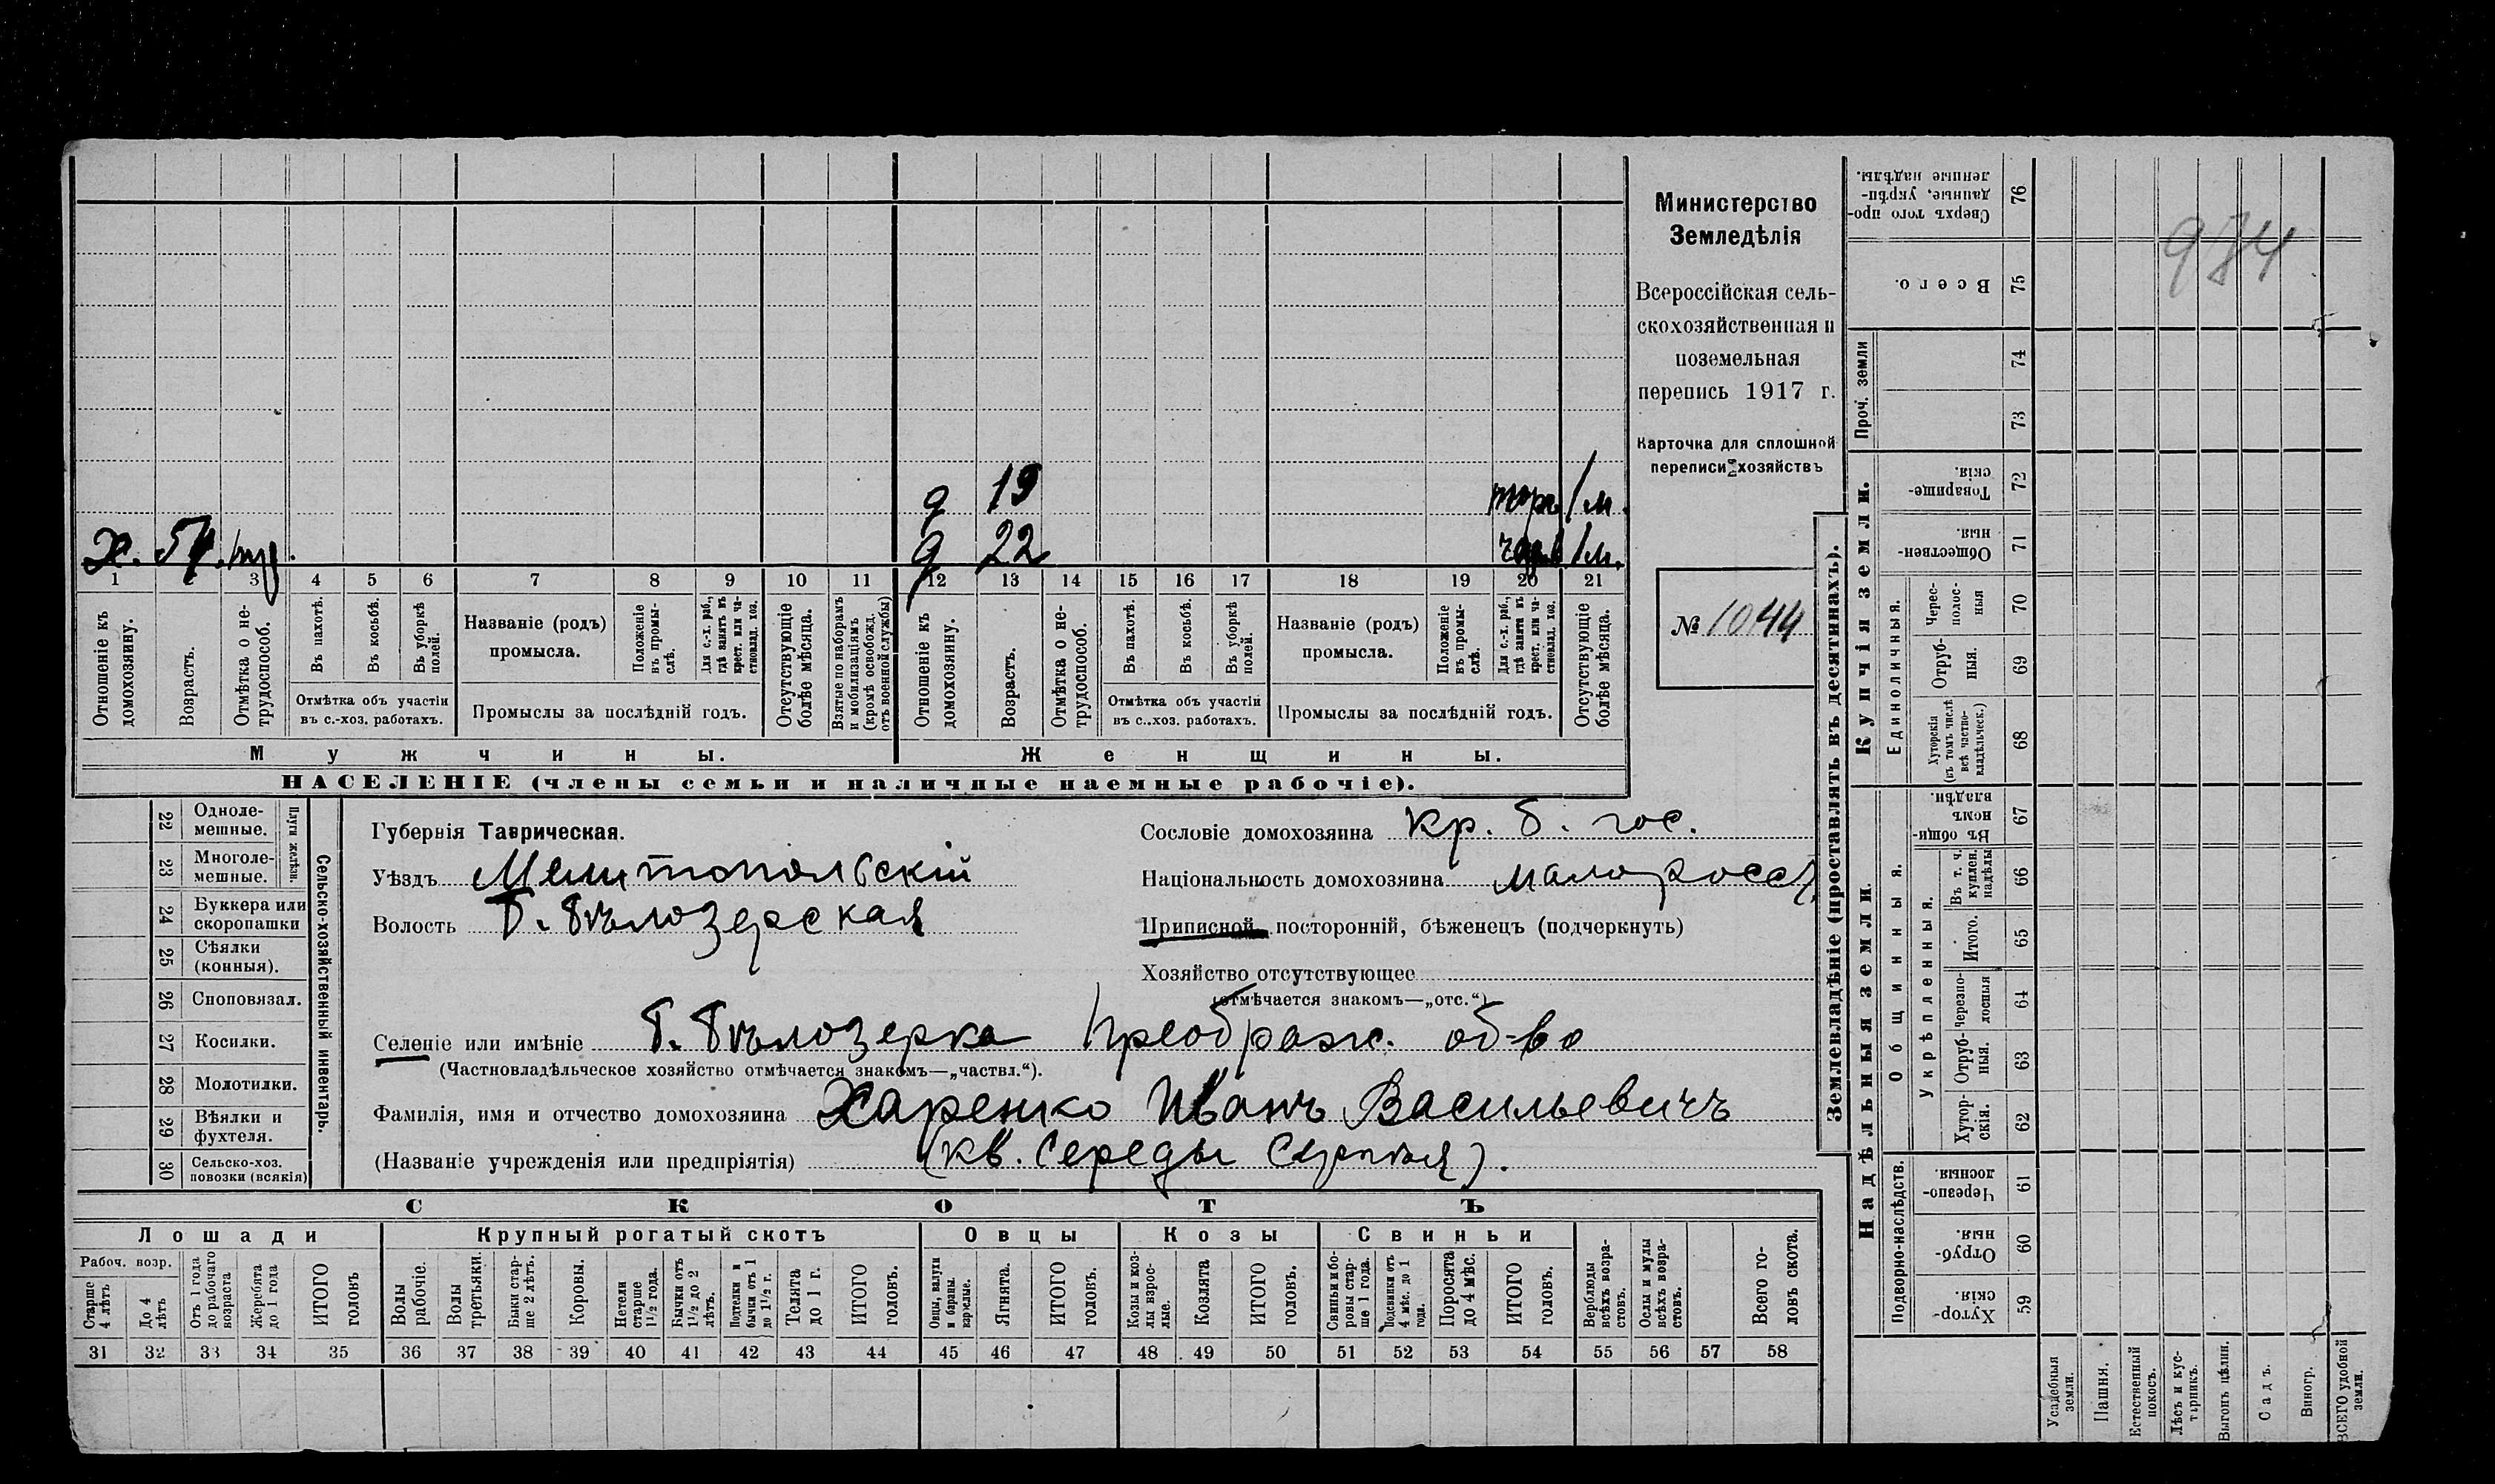 Министерство
Земледѣлія
Всероссійская сель-
скохозяйственная и
поземельная
перепись 1917 г.
Карточка для сплошной
переписи хозяйствъ
№ 1044
д 19 1 м.
х. 54. д 22 1 м.
1 2 3 4 5 6 7 8 9 10 11 12 13 14 15 16 17 18 19 20 21
Отношеніе къ домохозяину.
Возрастъ.
Отмѣтка о не-трудоспособ.
Въ пахотѣ.
Въ косьбѣ.
Въ уборкѣ полей.
Отмѣтка объ участіи
въ с.-хоз. работахъ.
Названіе (родъ)
промысла.
Положеніе въ промы-слѣ.
Для с.-х. раб., гдѣ занятъ въ крест. или ча-стновлад. хоз.
Промыслы за послѣдній годъ.
Отсутствующіе болѣе мѣсяца.
Взятые по наборамъ и мобилизаціямъ (кромѣ освобожд. отъ военной службы)
Отношеніе къ домохозяину.
Возрастъ.
Отмѣтка о не-трудоспособ.
Въ пахотѣ.
Въ косьбѣ.
Въ уборкѣ полей.
Отмѣтка объ участіи
въ с..хоз. работахъ.
Названіе (родъ)
промысла.
Положеніе въ промы-слѣ.
Для с.-х. раб., гдѣ занята въ крест. или ча-стновлад. хоз.
Промыслы за послѣдній годъ.
Отсутствующіе болѣе мѣсяца.
Мужчины. Женщины.
НАСЕЛЕНІЕ (члены семьи и наличные наемные рабочіе).
22 Одноле-мешные.
23 Многоле-мешные.
Плуги желѣзн.
24 Буккера или скоропашки
25 Сѣялки (конныя).
26 Сноповязал.
27 Косилки.
28 Молотилки.
29 Вѣялки и фухтеля.
30 Сельско-хоз. повозки (всякія)
Сельско-хозяйственный инвентарь.
Губернія Таврическая.
Уѣздъ Мелитопольскій
Волость Б. Бѣлозерская
Сословіе домохозяина кр. б. гос.
Національность домохозяина малоросс.
Приписной, посторонній, бѣженецъ (подчеркнуть)
Хозяйство отсутствующее
(отмѣчается знакомъ—„отс.“)
Селеніе или имѣніе Б. Бѣлозерка Преображ. об-во
(Частновладѣльческое хозяйство отмѣчается знакомъ—„частвл.“).
Фамилія, имя и отчество домохозяина Харенко Иванъ Васильевичъ
(Названіе учрежденія или предпріятія) (кв. Середы Сергѣя).
СКОТЪ
Лошади Крупный рогатый скотъ Овцы Козы Свиньи
Рабоч. возр.
Старше 4 лѣтъ
До 4 лѣтъ
Отъ 1 года до рабочаго возраста
Жеребята до 1 года
ИТОГО головъ
Волы рабочіе.
Волы третьяки.
Быки стар-ше 2 лѣтъ.
Коровы.
Нетели старше 1½ года.
Бычки отъ 1½ до 2 лѣтъ.
Подтелки и бычки отъ 1 до 1½ г.
Телята до 1 г.
ИТОГО головъ.
Овцы, валухи и бараны взрослые.
Ягнята.
ИТОГО головъ.
Козы и коз-лы взрос-лые.
Козлята
ИТОГО головъ.
Свиньи и бо-ровы стар-ше 1 года.
Подсвинки отъ 4 мѣс. до 1 года.
Поросята до 4 мѣс.
ИТОГО головъ.
Верблюды всѣхъ возра-стовъ.
Ослы и мулы всѣхъ возра-стовъ.
Всего го-ловъ скота.
31 32 33 34 35 36 37 38 39 40 41 42 43 44 45 46 47 48 49 50 51 52 53 54 55 56 57 58
Землевладѣніе (проставлять въ десятинахъ).
Купчія земли.
Надѣльныя земли.
Сверхъ того про-данные, укрѣп-ленные надѣлы. 76
Всего. 75
Проч. земли 74
73
Товарище-скія. 72
Обществен-ныя 71
Единоличныя.
Черес-полос-ныя 70
Отруб-ныя. 69
Хуторскія (въ томъ числѣ всѣ частно-владѣльческ.) 68
Общинныя.
Въ общи-номъ владѣн. 67
Укрѣпленныя.
Въ т. ч. куплен. надѣлы 66
Итого. 65
Черезпо-лосныя 64
Отруб-ныя. 63
Хутор-скія. 62
Подворно-наслѣдств.
Черезпо-лосныя. 61
Отруб-ныя. 60
Хутор-скія. 59
Усадебныя земли.
Пашня.
Естественный покосъ.
Лѣсъ и кус-тарникъ.
Выгонъ цѣлин.
Садъ.
Виногр.
ВСЕГО удобной земли.
984